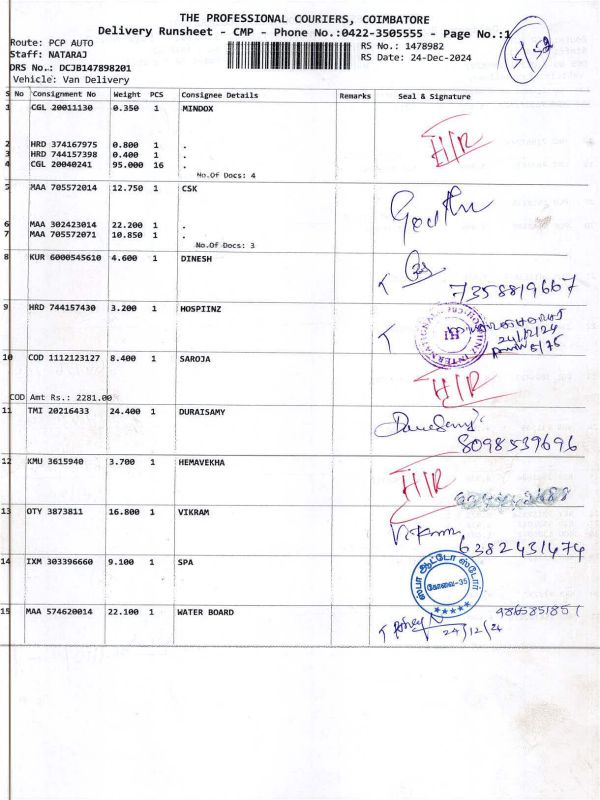 THE PROFESSIONAL COURIERS, COIMBATORE
Delivery Runsheet - CMP - Phone No.:0422-3505555 - Page No.:1
5/52
Route: PCP AUTO
RS No.: 1478982
Staff: NATARAJ
RS Date: 24-Dec-2024
DRS No.: DCJB147898201
Vehicle: Van Delivery
S No Consignment No Weight PCS Consignee Details Remarks Seal & Signature
1 CGL 20011130 0.350 1 MINDOX
H/R
2 HRD 374167975 0.800 1 .
3 HRD 744157398 0.400 1 .
4 CGL 20040241 95.000 16 .
No.Of Docs: 4
5 MAA 705572014 12.750 1 CSK
6 MAA 302423014 22.200 1 .
7 MAA 705572071 10.850 1 .
No.Of Docs: 3
8 KUR 6000545610 4.600 1 DINESH
7358819667
9 HRD 744157430 3.200 1 HOSPIINZ
HOSPIINZ INTERNATIONAL
HI
24/12/24
10 COD 1112123127 8.400 1 SAROJA
H/R
COD Amt Rs.: 2281.00
11 TMI 20216433 24.400 1 DURAISAMY
8098539696
12 KMU 3615940 3.700 1 HEMAVEKHA
H/R
13 OTY 3873811 16.800 1 VIKRAM
Vikram
6382431474
14 IXM 303396660 9.100 1 SPA
ஸ்பா ஆட்டோ ஸ்டோர்
கோவை-35
15 MAA 574620014 22.100 1 WATER BOARD
9865851851
24/12/24